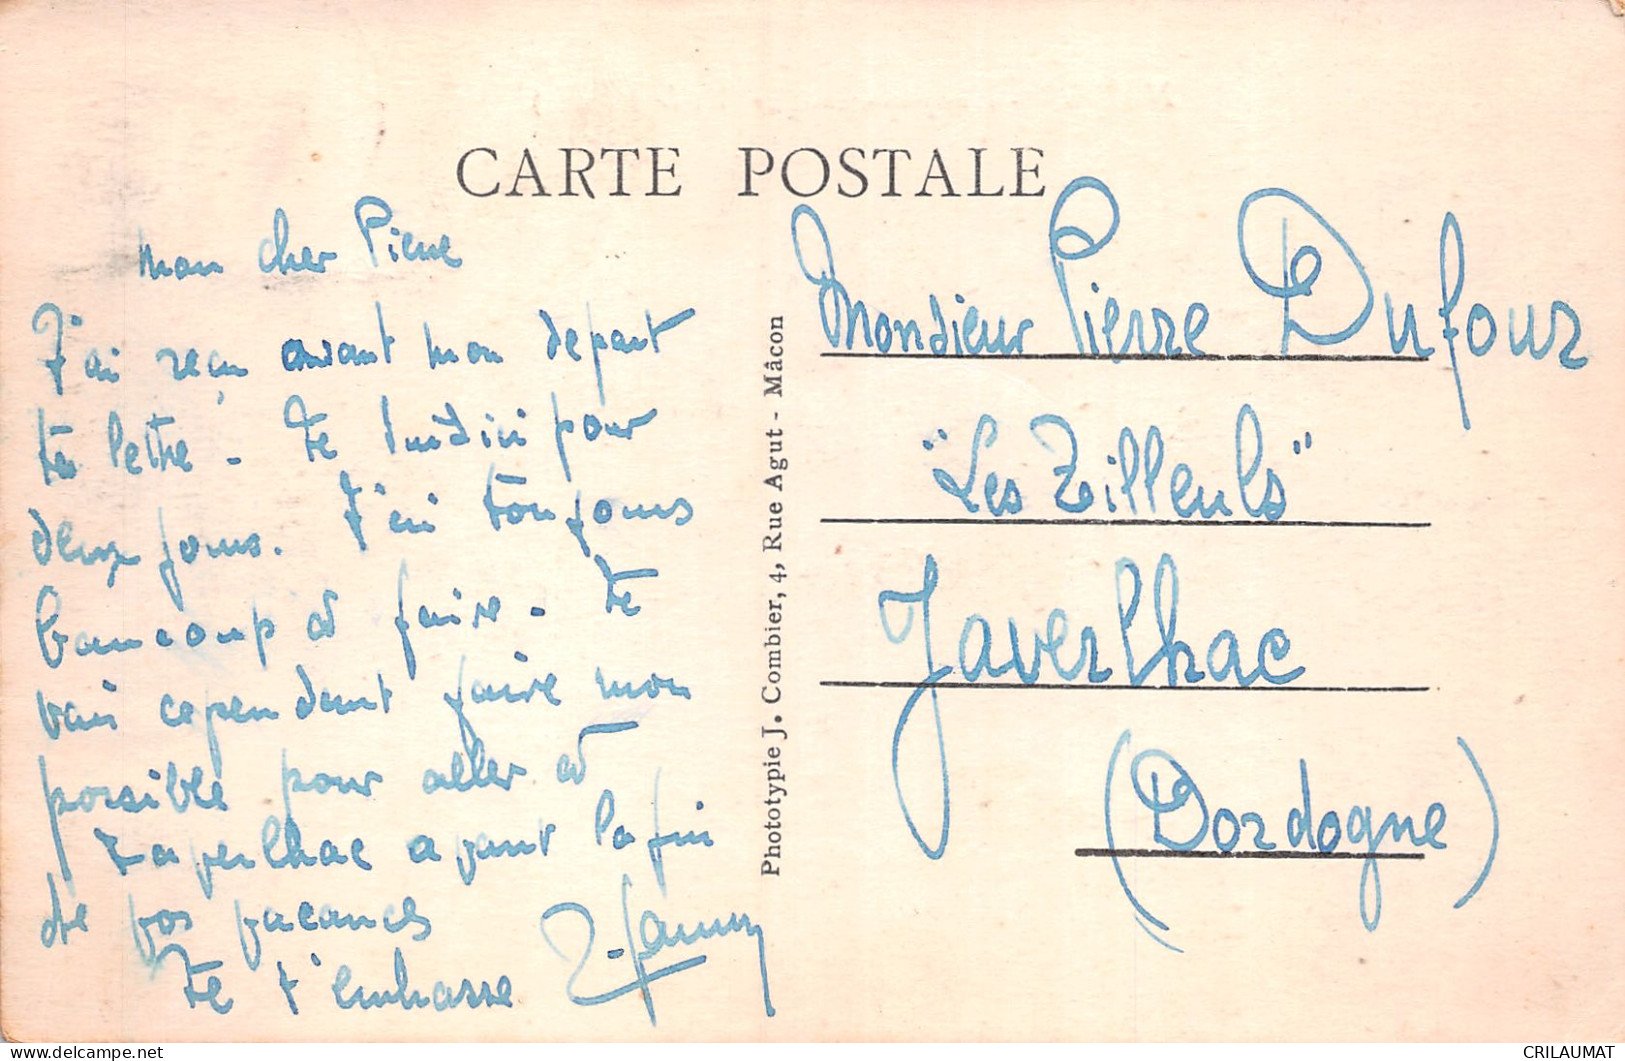 CARTE POSTALE
mon cher Pierre
J'ai reçu avant mon depart
ta lettre - Je suis ici pour
deux jours. J'ai toujours
beaucoup à faire - Je
vais cependant faire mon
possible pour aller à
Javerlhac avant la fin
de vos vacances
Je t'embrasse
Phototypie J. Combier, 4, Rue Agut - Mâcon
Monsieur Pierre Dufour
"Les Tilleuls"
Javerlhac
(Dordogne)
delcampe.net
CRILAUMAT